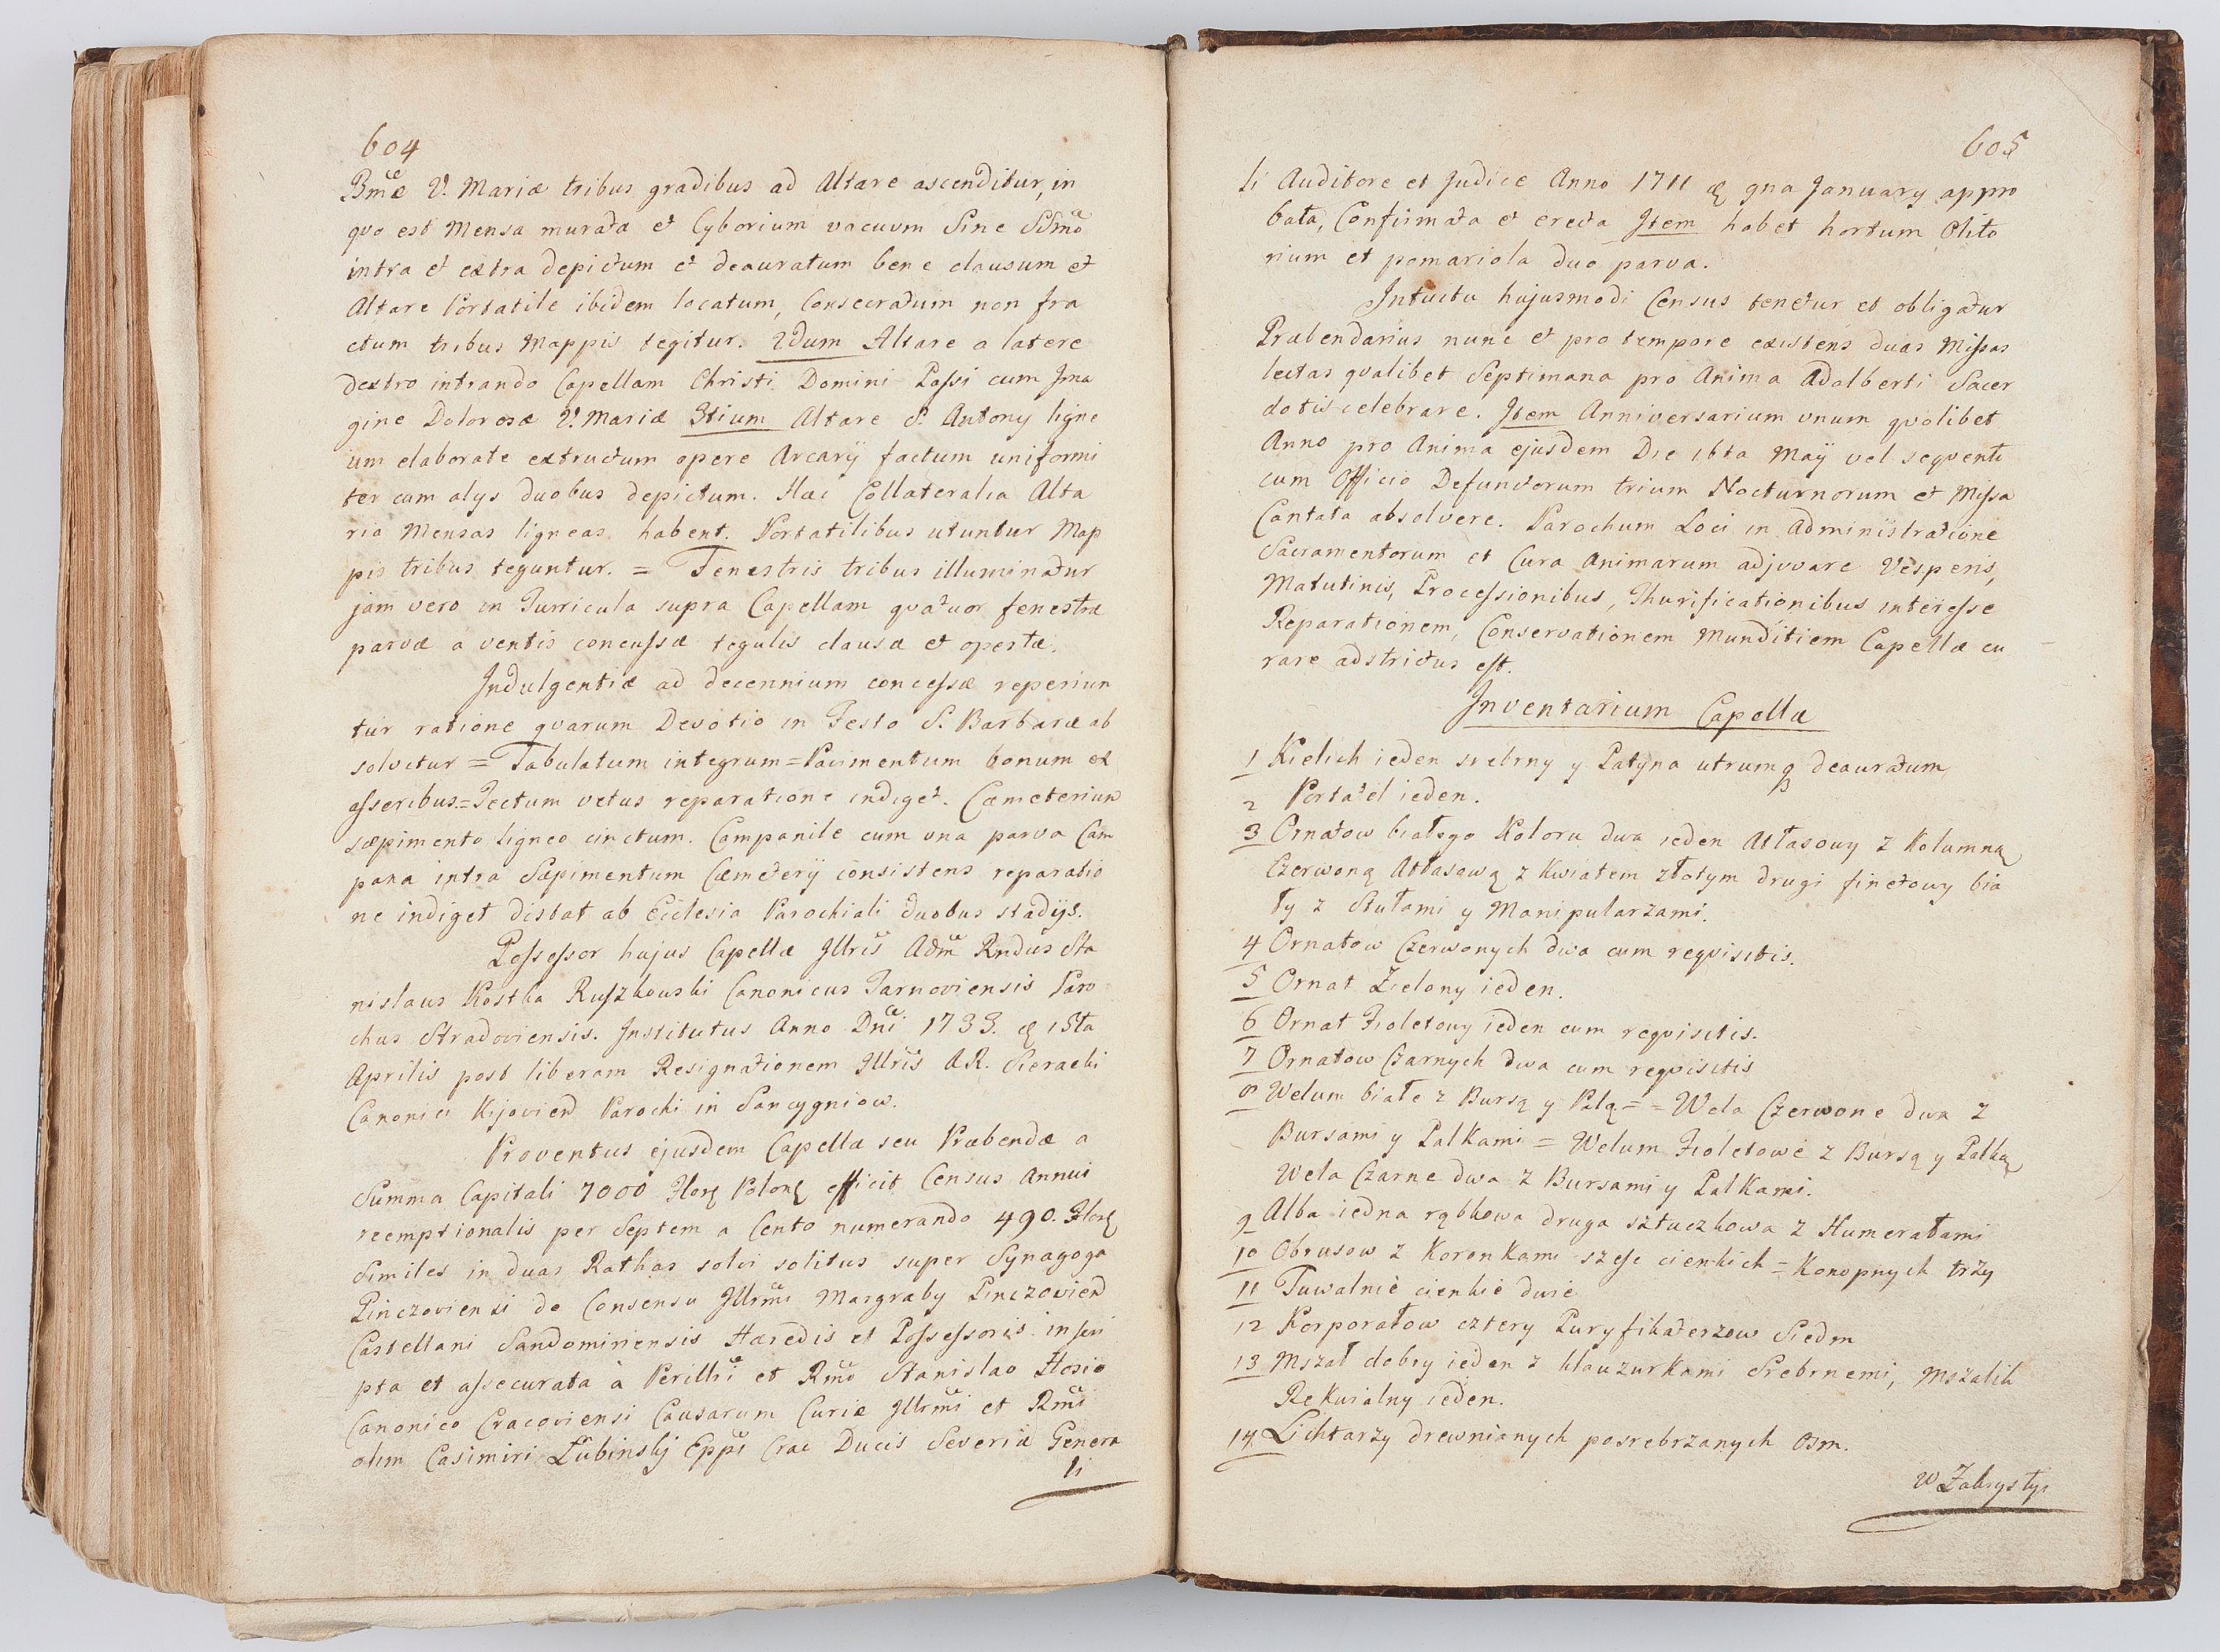 604
Bmæ V. Mariæ tribus gradibus ad Altare ascenditur, in
quo est Mensa murata et Cyborium vacuum Sine SSmo
intra et extra depictum et deauratum bene clausum et
Altare Portatile ibidem locatum, Consecratum non fra
ctum tribus Mappis tegitur. 2dum Altare a latere
dextro intrando Capellam Christi Domini Passi cum Ima
gine Dolorosæ V. Mariæ 3tium Altare S. Antony ligne
um elaborate extructum opere Arcarÿ factum uniformi
ter cum alys duobus depictum. Hæc Collateralia Alta
ria Mensas ligneas habent. Portatilibus utuntur Map
pis tribus teguntur. = Fenestris tribus illuminatur
jam vero in Turricula supra Capellam quatuor fenestræ
parvæ a ventis concussæ tegulis clausæ et opertæ.
Indulgentiæ ad decennium concessæ reperiun
tur ratione quarum Devotio in Festo S. Barbaræ ab
solvitur = Tabulatum integrum = Pavimentum bonum ex
asseribus. = Tectum vetus reparatione indiget. Cæmeterium
sæpimento ligneo cinctum. Campanile cum una parva Cam
pana intra Sæpimentum Cæmeterÿ consistens reparatio
ne indiget distat ab Ecclesia Parochiali duobus stadijs.
Possessor hujus Capellæ Illris Adm Rndus Sta
nislaus Kostka Ruszkowski Canonicus Tarnoviensis Paro
chus Stradoviensis. Institutus Anno Dni 1733. æ 15ta
Aprilis post liberam Resignationem Illris AR. Sieracki
Canonici Kijovien Parochi in Sancygniow.
Proventus ejusdem Capellæ seu Præbendæ a
Summa Capitali 7000 Flor Polon efficit Census Annui
reemptionalis per Septem a Cento numerando 490. Flor
Similes in duas Rathas solvi solitus super Synagoga
Pinczoviensi de Consensu Illrmi Margraby Pinczovien
Castellani Sandomiriensis Hæredis et Possessoris inscri
pta et assecurata à Perillri et Rmo Stanislao Hosio
Canonico Cracoviensi Causarum Curiæ Illrmi et Rmi
olim Casimiri Łubinskj Eppi Crac Ducis Severiæ Genera
li
605
li Auditore et Judice Anno 1711 æ 9na January appro
bata, Confirmata et erecta Item habet hortum Olito
rium et pomariola duo parva.
Intuitu hujusmodi Census tenetur et obligatur
Præbendarius nunc et pro tempore existens duas Missas
lectas qualibet Septimana pro Anima Adalberti Sacer
dotis celebrare. Item Anniversarium unum quolibet
Anno pro Anima ejusdem Die 16ta Maÿ vel sequenti
cum Officio Defunctorum trium Nocturnorum et Missa
Cantata absolvere. Parochum Loci in Administratione
Sacramentorum et Cura Animarum adjuvare Vesperis,
Matutinis, Processionibus, Thurificationibus interesse
Reparationem, Conservationem Munditiem Capellæ cu
rare adstrictus est.
Inventarium Capellæ
1 Kielich ieden srebrny y Patyna utrumq deauratum
2 Portatel ieden.
3 Ornatow białego Koloru dwa ieden Atłasowy z Kolumną
Czerwoną Atłasową z Kwiatem złotym drugi finetowy bia
ły z Stułami y Manipularzami.
4 Ornatow Czerwonych dwa cum requisitis.
5 Ornat Zielony ieden.
6 Ornat Fioletowy ieden cum requisitis.
7 Ornatow Czarnych dwa cum requisitis
8 Welum białe z Bursą y Palą = = Wela Czerwone dwa z
Bursami y Palkami = Welum Fioletowe z Bursą y Palką
Wela Czarne dwa z Bursami y Palkami.
9 Alba iedna rąbkowa druga sztuczkowa z Humerałami
10 Obrusow z Koronkami szesc cienkich = Konopnych trzy
11 Tuwalnie cienkie dwie
12 Korporałow cztery Puryfikaterzow Siedm
13 Mszał dobry ieden z klauzurkami Srebrnemi, Mszalik
Rekwialny ieden.
14. Lichtarzy drewnianych posrebrzanych Osm.
w Zakrystyi